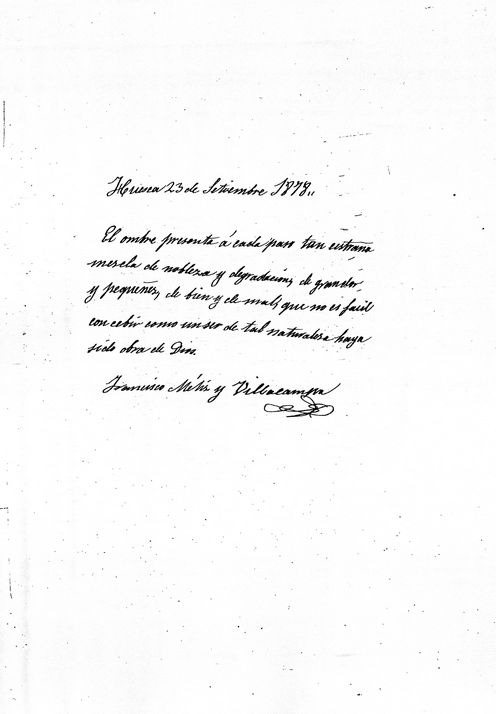 Huesca 23 de Setiembre 1878.,
El ombre presenta á cada paso tan estraña
mezcla de nobleza y degradacion, de grandor,
y pequeñez, de bien y de mal, que no es facil
concebir como un ser de tal naturaleza haya
sido obra de Dios.
Francisco y Villacampa